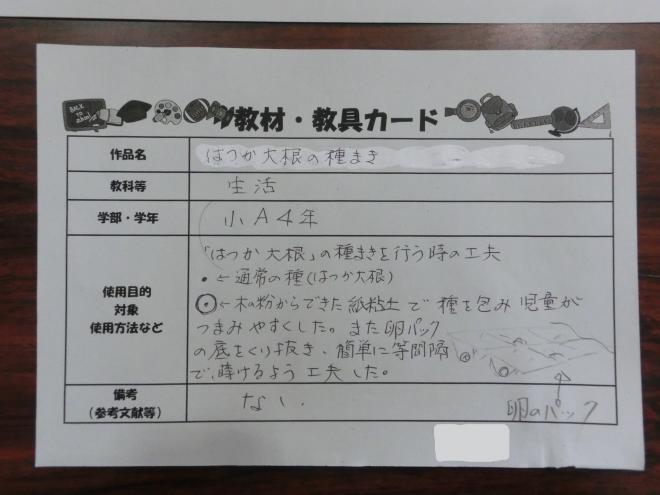 BACK TO school
教材・教具カード
作品名 はつか大根の種まき
教科等 生活
学部・学年 小A4年
使用目的
対象
使用方法など
「はつか大根」の種まきを行う時の工夫
・←通常の種(はつか大根)
⦿←木の粉からできた紙粘土で種を包み児童が
つまみやすくした。また卵パック
の底をくり抜き、簡単に等間隔
で蒔けるよう工夫した。
備考
(参考文献等)
なし.
卵のパック